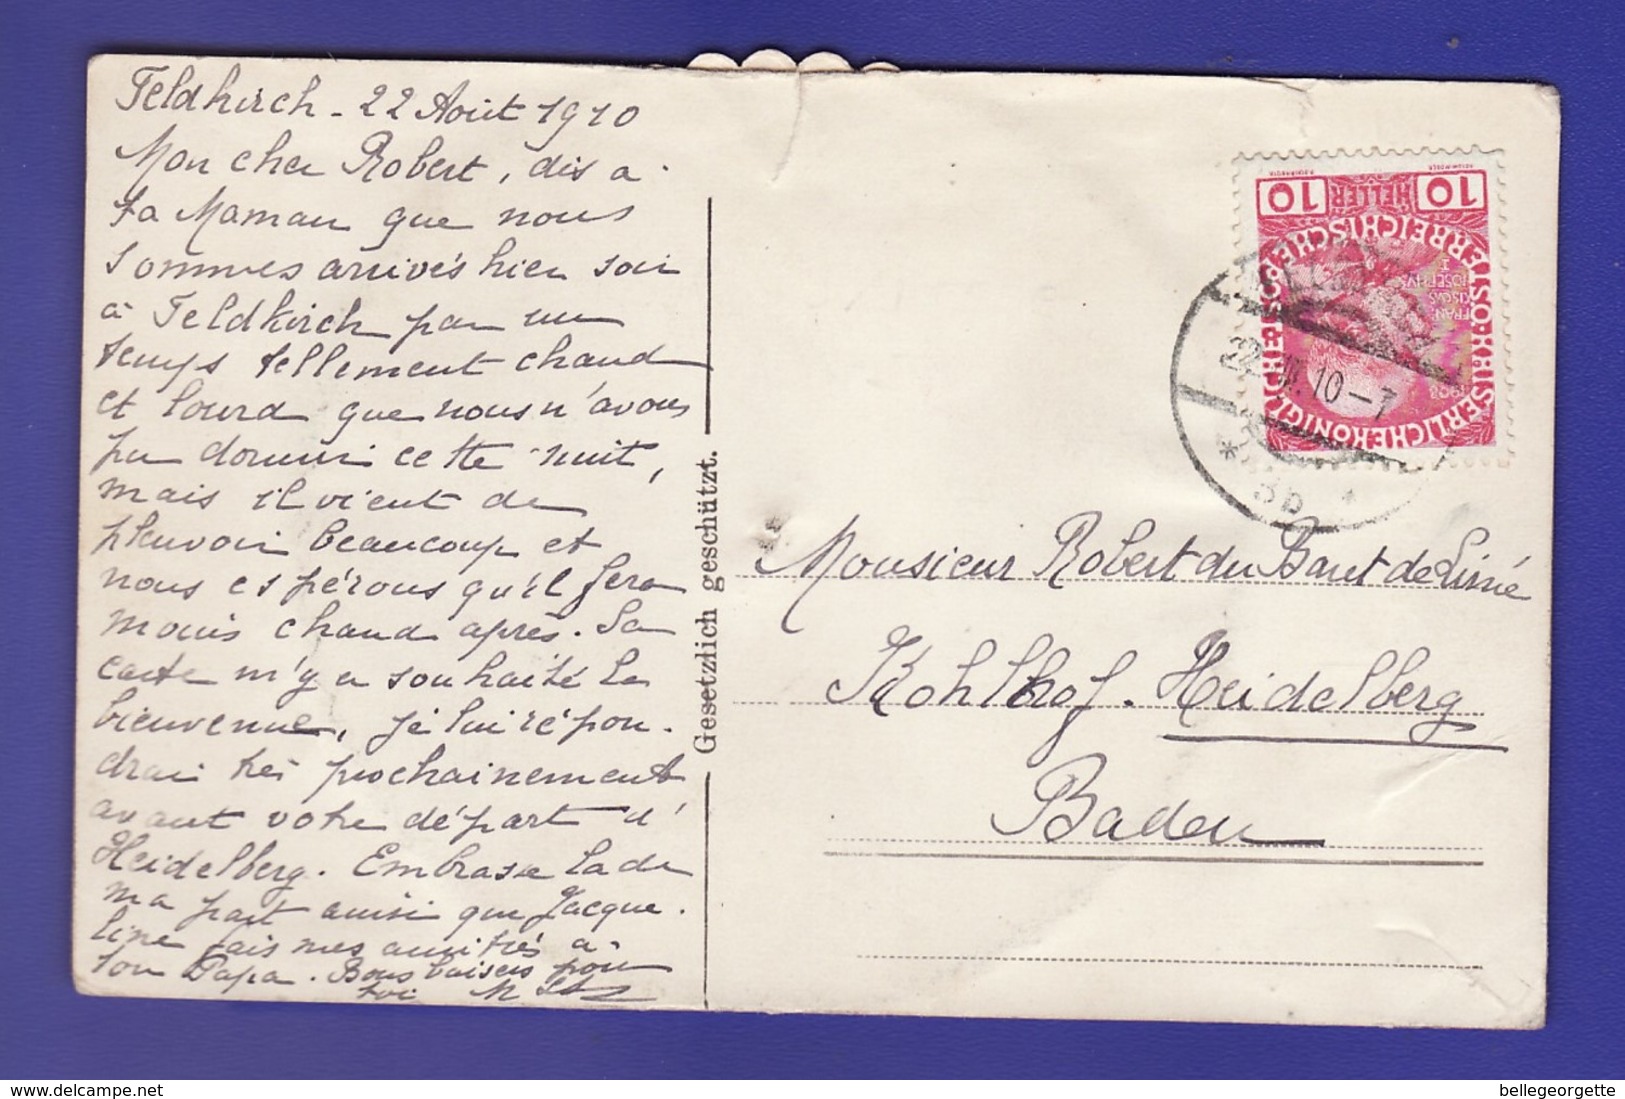 Feldkirch - 22 Août 1910
Mon cher Robert, dis a
ta Maman que nous
sommes arrivés hier soir
à Feldkirch par un
temps tellement chaud
et lourd que nous n'avons
pu dormir cette nuit,
mais il vient de
pleuvoir beaucoup et
nous espérons qu'il fera
moins chaud après. Sa
carte m'y a souhaité la
bienvenue, je lui répon-
drai très prochainement
avant votre départ d'
Heidelberg. Embrasse la de
ma part ainsi que Jacque-
line fais mes amitiés a
ton Papa. Bons baisers pour
toi M
Gesetzlich geschützt.
10 HELLER 10
KAISERLICHE KÖNIGLICHE ÖSTERREICHISCHE
FRAN
CISCVS
JOSEPHVS
I
1908
22. VIII. 10-7
* 3b *
Monsieur Robert du Baut de
Kohlhof - Heidelberg
Baden
bellegeorgette